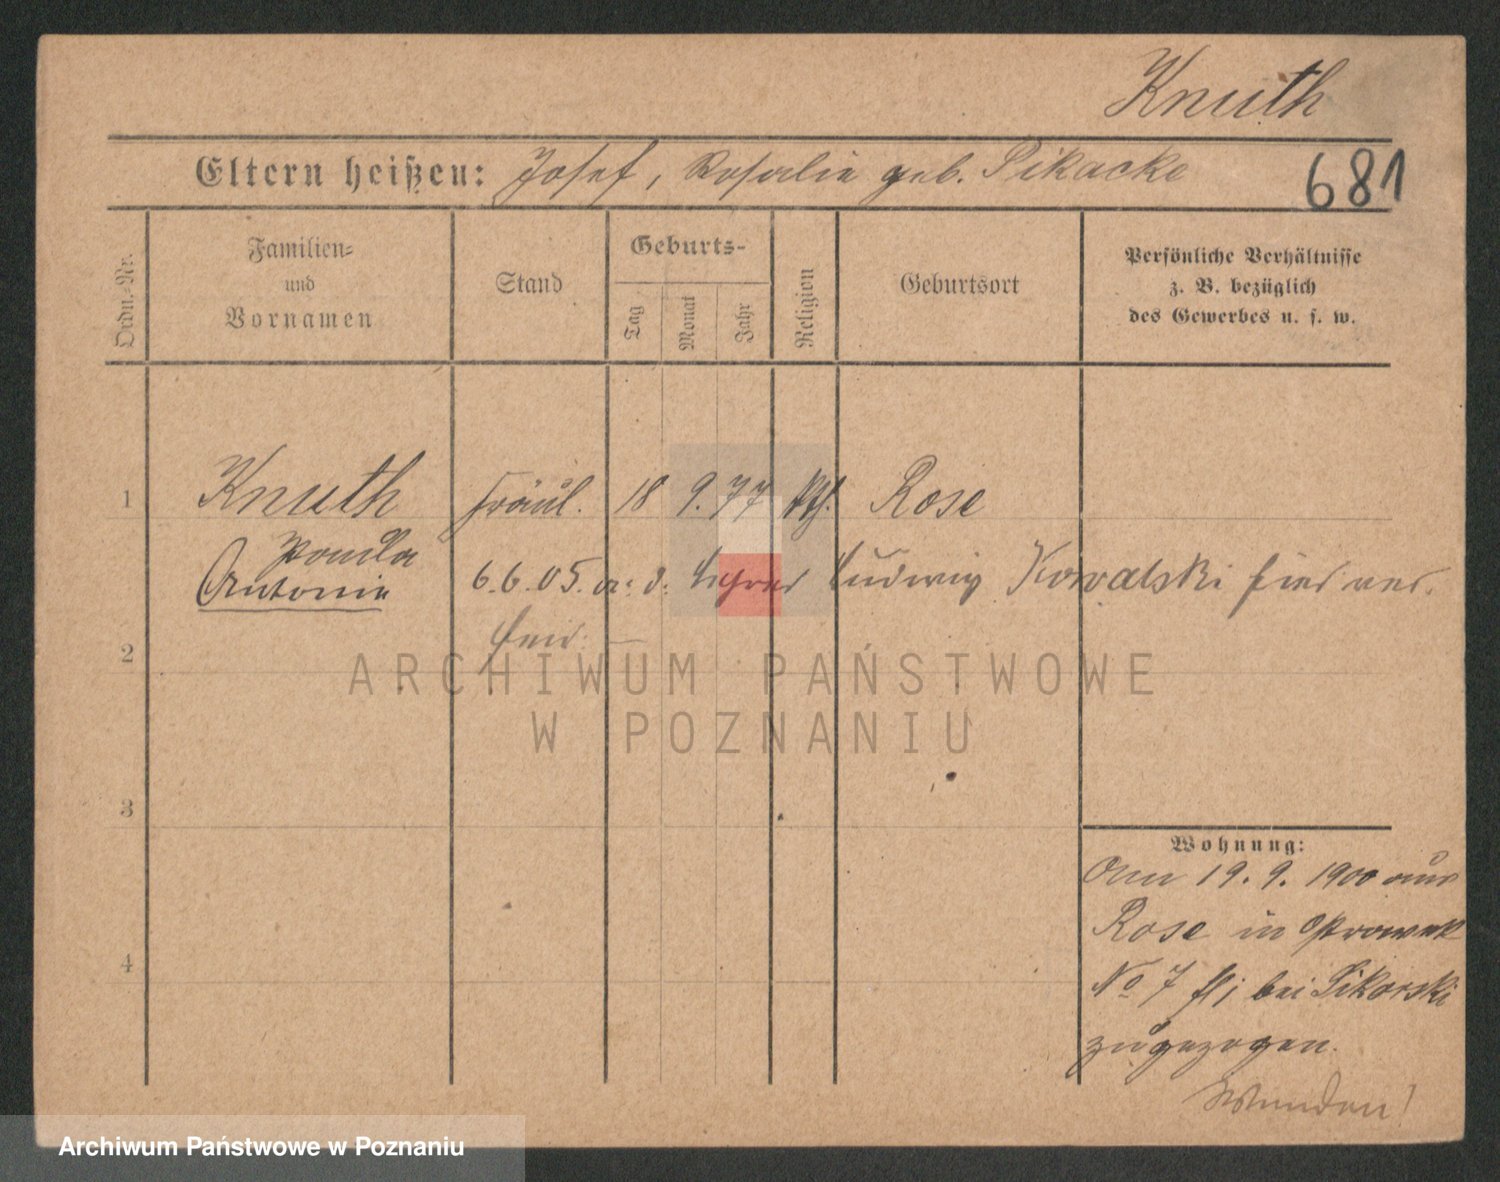 Knuth
Eltern heißen: Josef, Rosalie geb. Pikacke
681
Ordn.-Nr.
Familien-
und
Vornamen
Stand
Geburts-
Tag
Monat
Jahr
Religion
Geburtsort
Persönliche Verhältnisse
z. B. bezüglich
des Gewerbes u. s. w.
1 Knuth Fräul. 18 9. 77 kth. Rose
Antonie 6.6.05. a. d. Lehrer Ludwig Kowalski hier ver-
heir.
2
3
4
Wohnung:
Am 19. 9. 1900 aus
Rose in Ostrowek
No 7 bei Sikorski
zugezogen.
ARCHIWUM PAŃSTWOWE
W POZNANIU
Archiwum Państwowe w Poznaniu